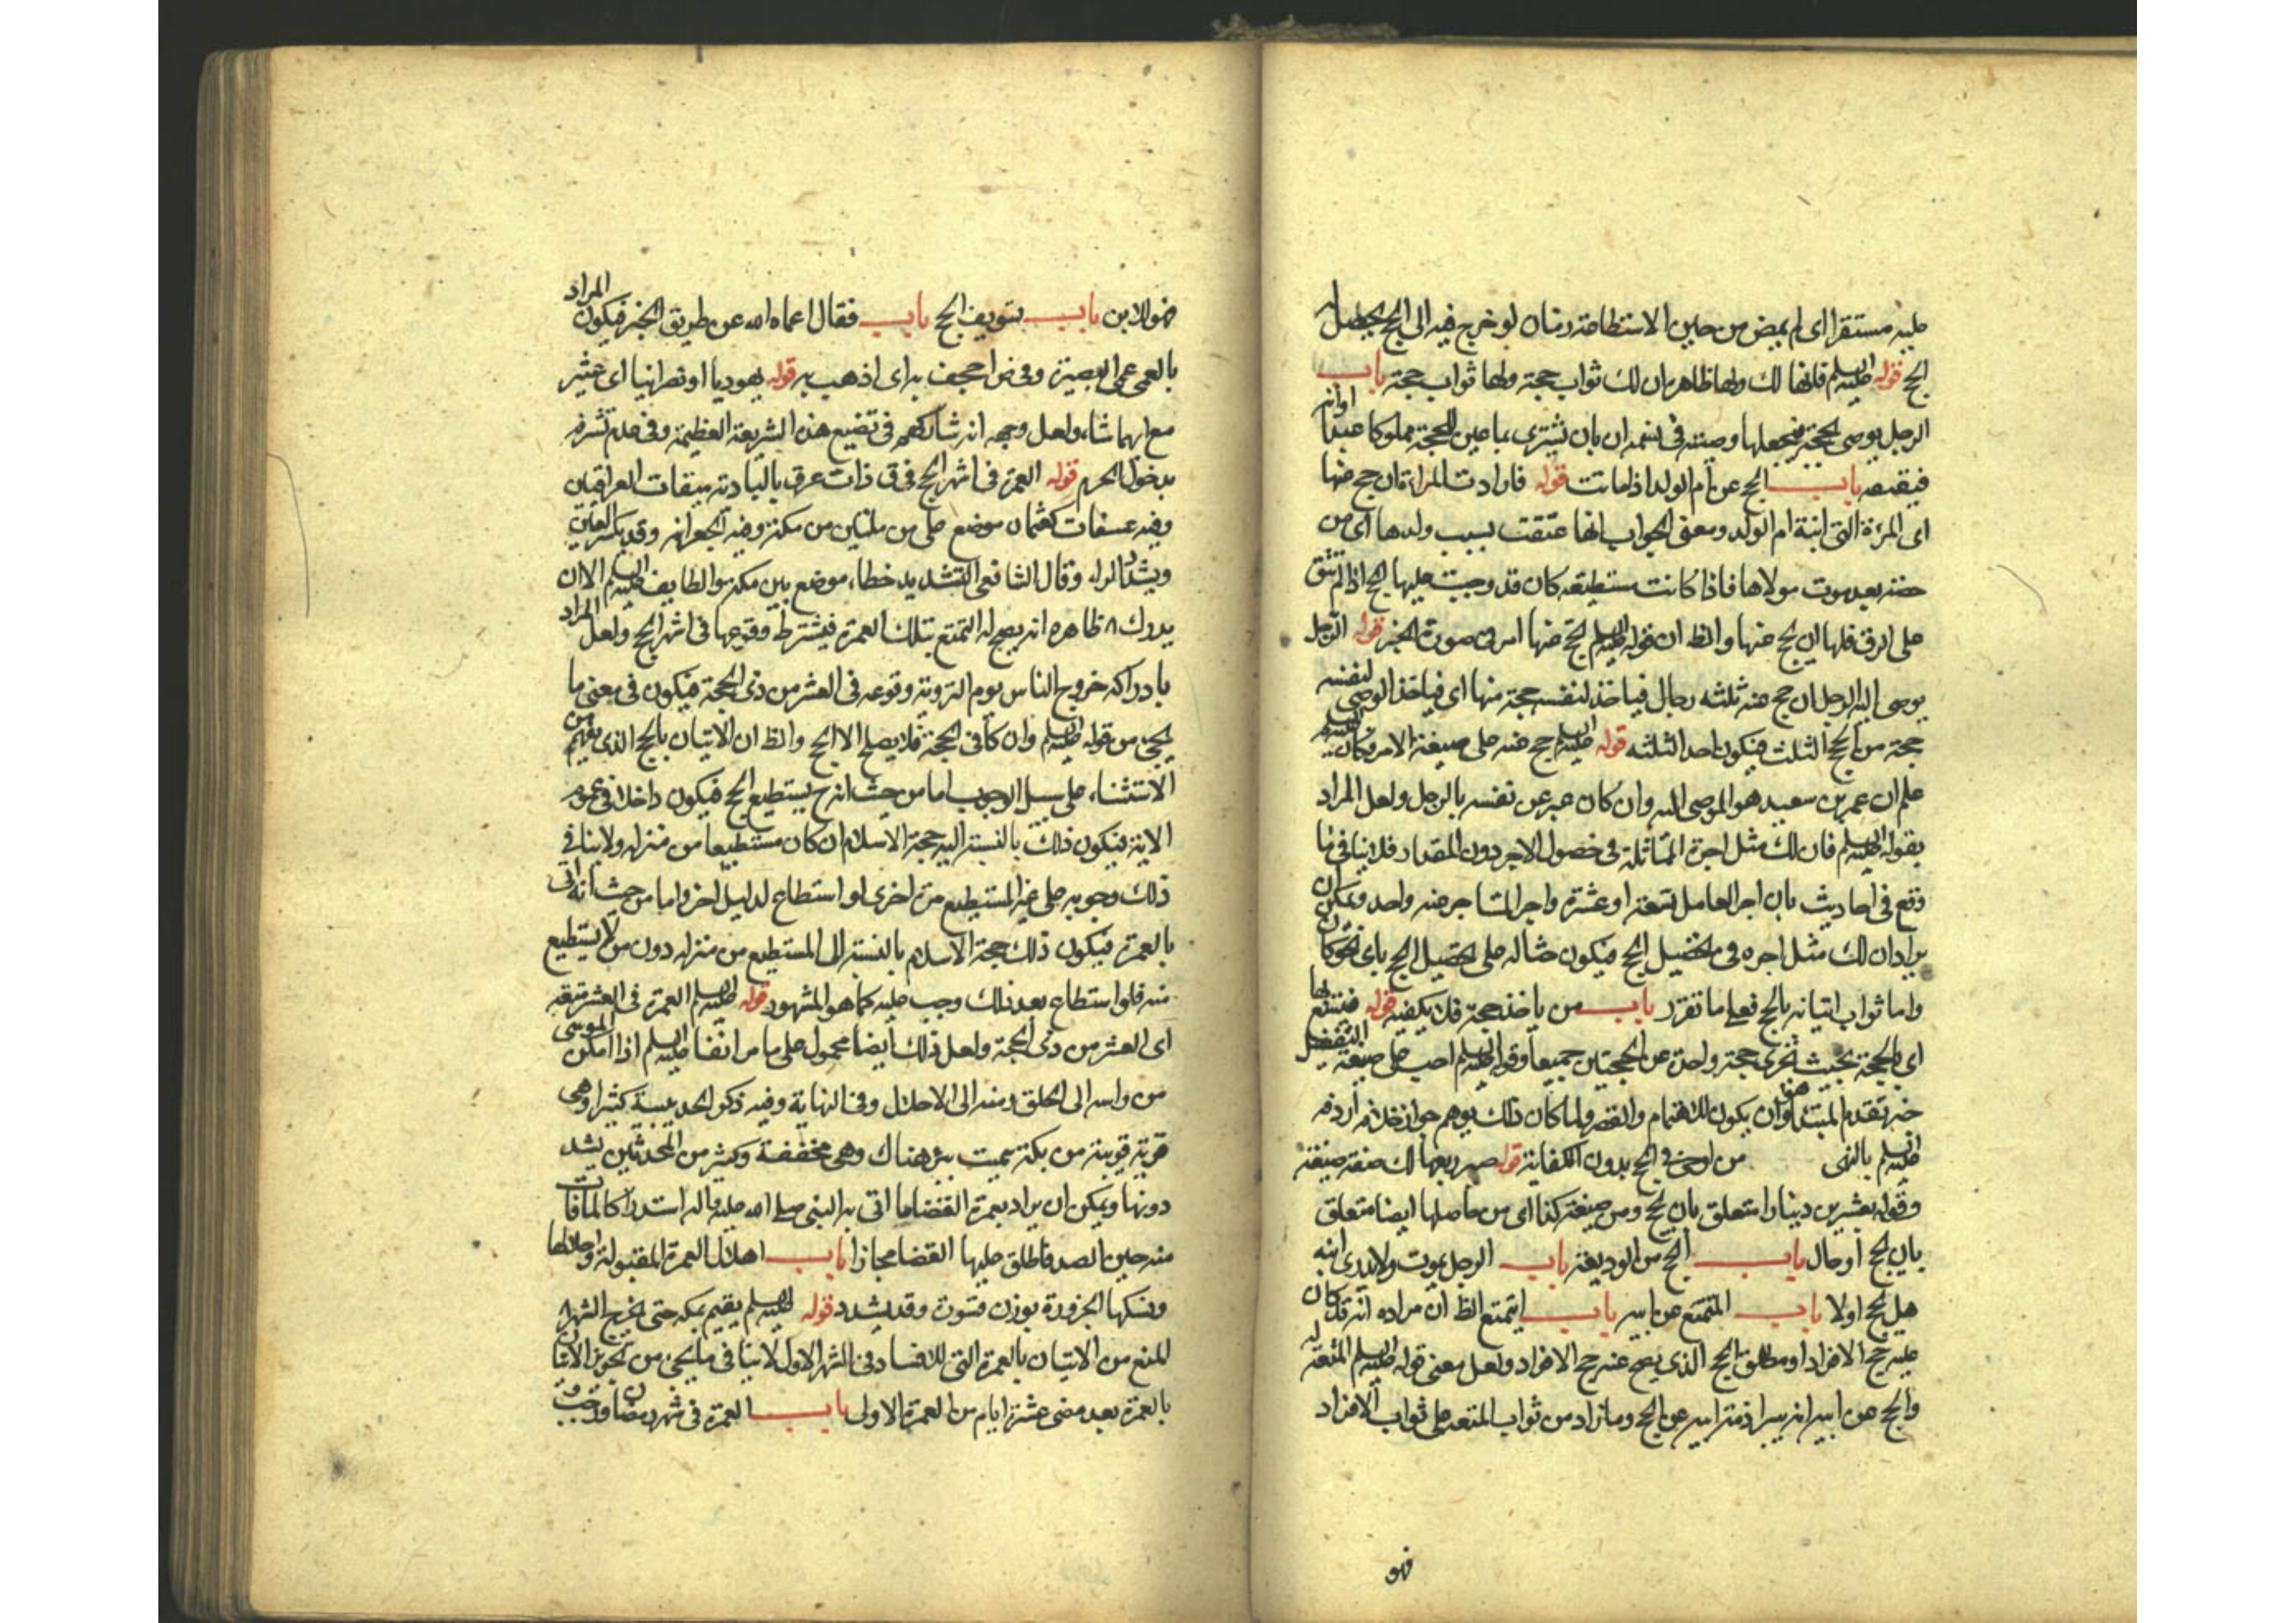 عليه مستقرا اى لم يمض من حين الاستطاعة زمان لو خرج فيه الى الحج يحصل له
الحج قوله عليه السلم فانها لك ولها ظاهره ان لك ثواب حجة ولها ثواب حجة باب
الرجل يوصى بحجة فيجعلها وصيته فى نسمة ان بان يشترى بما عين للحجة مملوكا عبدا او انه
فيقبضه باب الحج عن ام الولد اذا ماتت قوله فارادت المراة ان حج عنها
اى المرءة التى ابنة ام الولد ومعنى الجواب انها عتقت بسبب ولدها اى من
حصته بعد موت مولاها فاذا كانت مستطيعة كان قد وجبت عليها الحج اذا لم تبق
على الرق فلها ان تحج عنها والظ ان قوله عليه السلم لتحج عنها امر فى صورة الخبر قوله الرجل
يوصى اليه الرجل ان حج عنه ثلثه رجال فياخذ لنفسه حجة منها اى فياخذ الوصى لنفسه
حجة من الحج الثلث فيكون احد الثلثه قوله عليه السلم حج عنه على صيغة الامر وكأنه
علم ان عمر بن سعيد هو الموصى اليه وان كان عبر عن نفسه بالرجل ولعل المراد
بقوله عليه السلم فان لك مثل اجره المماثلة فى حصول الاجر دون المقدار فلا ينافى ما
وقع فى احاديث بان اجر العامل تسعة او عشرة واجر المستاجر عنه واحد ويمكن ان
يراد ان لك مثل اجره فى تحصيل الحج فيكون حثا له على تحصيل الحج باى نحو كان
واما ثواب اتيانه بالحج فعلى ما تقرر باب من ياخذ حجة فلا يكفيه قوله
اى بالحجة بحيث تجزى حجة واحدة عن الحجتين جميعا وقوله عليه السلم احب على صيغة التفضيل
خبر تقدم المبتدا وان يكون للاهتمام والقصر ولما كان ذلك يوهم جواز خلافه اردفه
عليه السلم بالنهى من اوصى فى الحج بدون الكفاية قوله صير ربعها لك صفة ضيعة
وقوله بعشرين دينارا متعلق بان تحج ومن ضيعة كذا اى من حاصلها ايضا متعلق
بان يحج او حال باب الحج من الوديعة باب الرجل يموت ولا يدرى ابنه
هل حج اولا باب المتمتع عن ابيه باب ايتمتع الظ ان مراده انه قد كان
عليه حج الافراد او مطلق الحج الذى يصح عنه حج الافراد ولعل معنى قوله عليه السلم المتعة له
والحج عن ابيه انه يبرا ذمة ابيه عن الحج وما زاد من ثواب المتعة على ثواب الافراد
فهو
فهو للابن باب تسويف الحج باب فقال اعماه الله عن طريق الخير فيكون المراد
بالعمى عمى البصيرة وفى ض احجف به اى اذهب به قوله يهوديا او نصرانيا اى حشر
مع ايهما شاء ولعل وجهه انه شاركهم فى تضييع هذه الشريعة العظيمة وفى عدم تشرفه
بدخول الحرم قوله العمرة فى اشهر الحج فى ق ذات عرق بالبادية ميقات العراقيين
وفيه عسفان كعثمان موضع على مرحلتين من مكة وفيه الجعرانه وقد يكسر العين
ويشدد الراء وقال الشافعى التشديد خطاء موضع بين مكة والطايف عليه السلم الا ان
يدرك ظاهره انه يصح له التمتع بتلك العمرة فيشترط وقوعها فى اشهر الحج ولعل المراد
بادراكه خروج الناس يوم التروية وقوعه فى العشر من ذى الحجة فيكون فى معنى ما
يجئ من قوله عليه السلم وان كان فى الحجة فلا يصلح الا الحج والظ ان الاتيان بالحج الذى يفهم من
الاستثناء على سبيل الوجوب اما من حيث انه ح يستطيع الحج فيكون داخلا فى عموم
الاية فيكون ذلك بالنسبة اليه حجة الاسلام ان كان مستطيعا من منزله ولا ينافى
ذلك وجوبه على غير المستطيع مرة اخرى لو استطاع لدليل اخر واما من حيث انه اتى
بالعمرة فيكون ذلك حجة الاسلام بالنسبة الى المستطيع من منزله دون من لا يستطيع
منه فلو استطاع بعد ذلك وجب عليه كما هو المشهور قوله عليه السلم العمرة فى العشر متعة
اى العشر من ذى الحجة ولعل ذلك ايضا محمول على ما مر انفا عليه السلم اذا امكن الموسى
من راسه الى الحلق منه الى الاحلال وفى النهاية وفيه ذكر الحديبية كثيرا وهى
قرية قريبة من مكة سميت ببئر هناك وهى مخففة وكثير من المحدثين يشد
دونها ويمكن ان يراد بعمرة القضاء ما اتى به النبى صلى الله عليه واله استدراكا لما فات
منه حين الصد فاطلق عليها القضا مجازا باب اهلال العمرة المقبولة واحلالها
ونسكها الجزورة بوزن قسورة وقد يشدد قوله عليه السلم يقيم بمكه حتى يخرج الشهر
المنع من الاتيان بالعمرة التى للافساد فى الشهر الاول لا ينافى ما يجئ من تجويز الاتيان
بالعمرة بعد مضى عشرة ايام من العمرة الاولى باب العمرة فى شهر رمضان